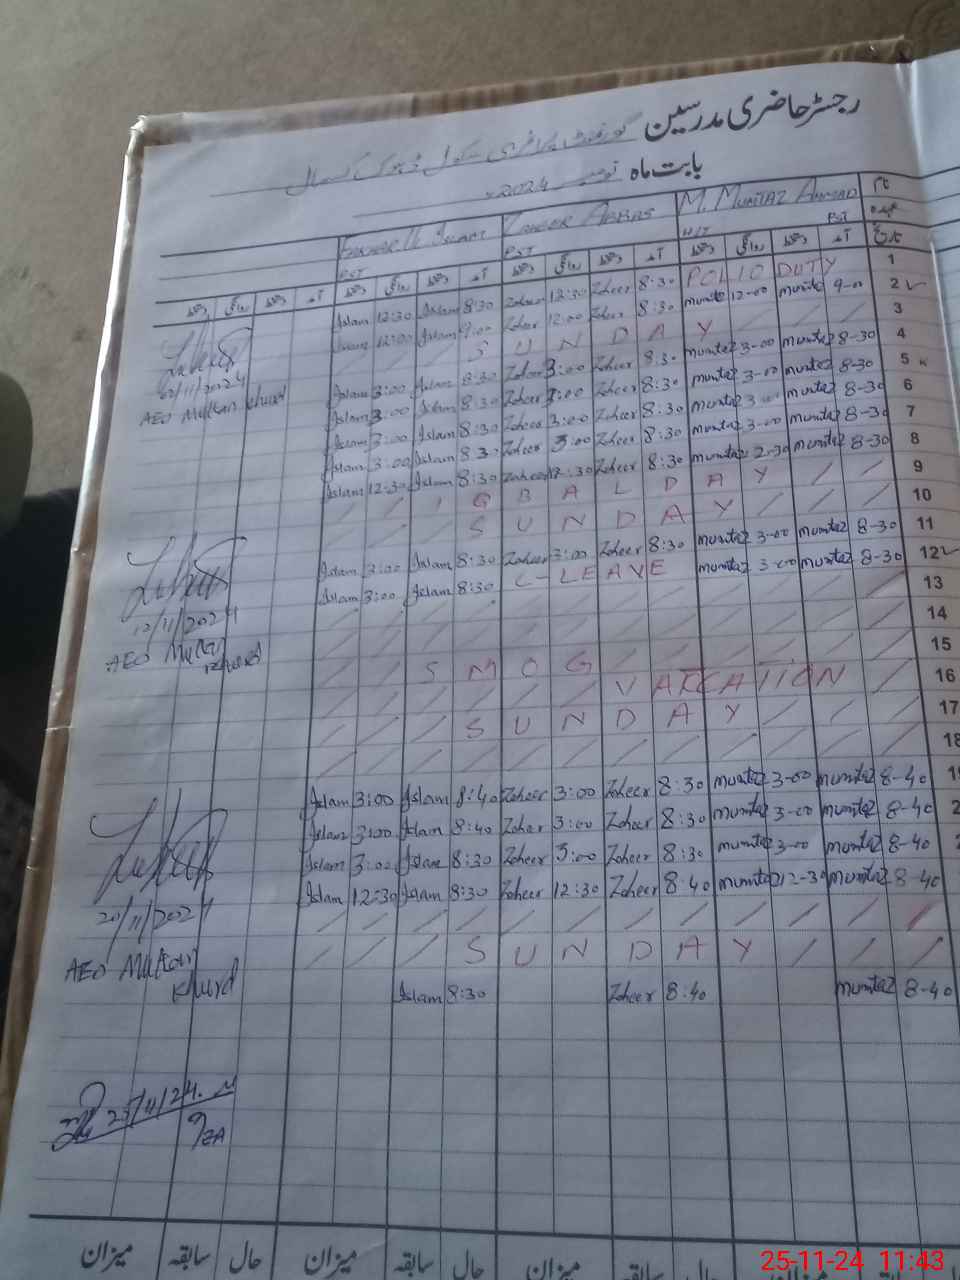 رجسٹر حاضری مدرسین گورنمنٹ پرائمری سکول ڈھوک
بابت ماہ نومبر 2024ء
نام M. MUMTAZ AHMAD ZAHEER ABBAS ISLAM
عہدہ H/T PST PST PST
تاریخ آمد دستخط روانگی دستخط آمد دستخط روانگی دستخط آمد دستخط روانگی دستخط آمد دستخط روانگی دستخط
Islam 12:30 Islam 8:30 Zoheer 12:30 Zoheer 8:30 POLIO DUTY 1
Islam 12:00 Islam 9:00 Zoheer 12:00 Zoheer 8:30 mumtaz 12-00 mumtaz 9-00 2
SUNDAY 3
Islam 3:00 Islam 8:30 Zoheer 3:00 Zoheer 8:30 mumtaz 3-00 mumtaz 8-30 4
Islam 3:00 Islam 8:30 Zoheer 3:00 Zoheer 8:30 mumtaz 3-00 mumtaz 8-30 5
Islam 3:00 Islam 8:30 Zoheer 3:00 Zoheer 8:30 mumtaz 3-00 mumtaz 8-30 6
Islam 3:00 Islam 8:30 Zoheer 3:00 Zoheer 8:30 mumtaz 3-00 mumtaz 8-30 7
Islam 12-30 Islam 8:30 Zoheer 12:30 Zoheer 8:30 mumtaz 2-30 mumtaz 8-30 8
/11/2024
AEO Multan Khurd
IQBAL DAY 9
SUNDAY 10
Islam 3:00 Islam 8:30 Zoheer 3:00 Zoheer 8:30 mumtaz 3-00 mumtaz 8-30 11
Islam 3:00 Islam 8:30 C-LEAVE mumtaz 3-00 mumtaz 8-30 12
12/11/2024
AEO Multan Khurd
13
14
15
SMOG VACATION 16
SUNDAY 17
18
Islam 3:00 Islam 8:40 Zoheer 3:00 Zoheer 8:30 mumtaz 3-00 mumtaz 8-40
Islam 3:00 Islam 8:40 Zoheer 3:00 Zoheer 8:30 mumtaz 3-00 mumtaz 8-40
Islam 3:00 Islam 8:30 Zoheer 3:00 Zoheer 8:30 mumtaz 3-00 mumtaz 8-40
Islam 12-30 Islam 8:30 Zoheer 12:30 Zoheer 8:40 mumtaz 12-30 mumtaz 8-40
20/11/2024
AEO Multan Khurd
SUNDAY
Islam 8:30 Zoheer 8:40 mumtaz 8-40
25/11/24
میزان سابقہ حال میزان سابقہ حال میزان سابقہ حال میزان
25-11-24 11:43